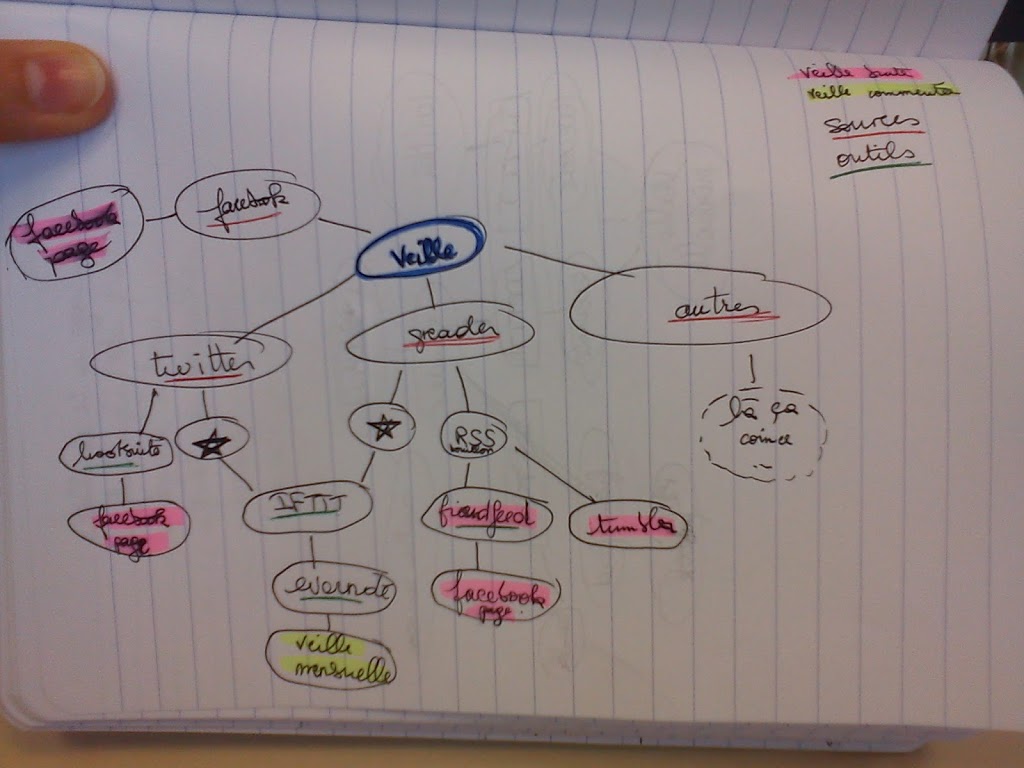 veille brute
veille commentée
sources
outils
facebook
page
facebook
veille
autres
greader
twitter
là ça
coince
hootsuite
RSS
bouillon
facebook
page
IFTTT
friendfeed
tumblr
evernote
facebook
page
veille
mensuelle